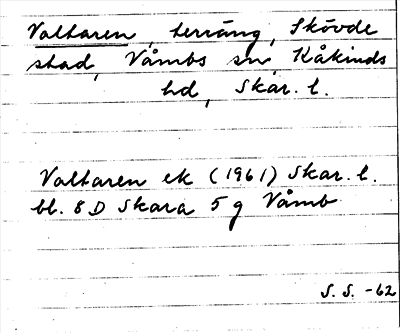 Valtaren, terräng, Skövde
stad, Våmbs sn, Kåkinds
hd, Skar. l.
Valtaren ek (1961) Skar. l.
bl. 8D Skara 5 g Våmb
S. S. -62